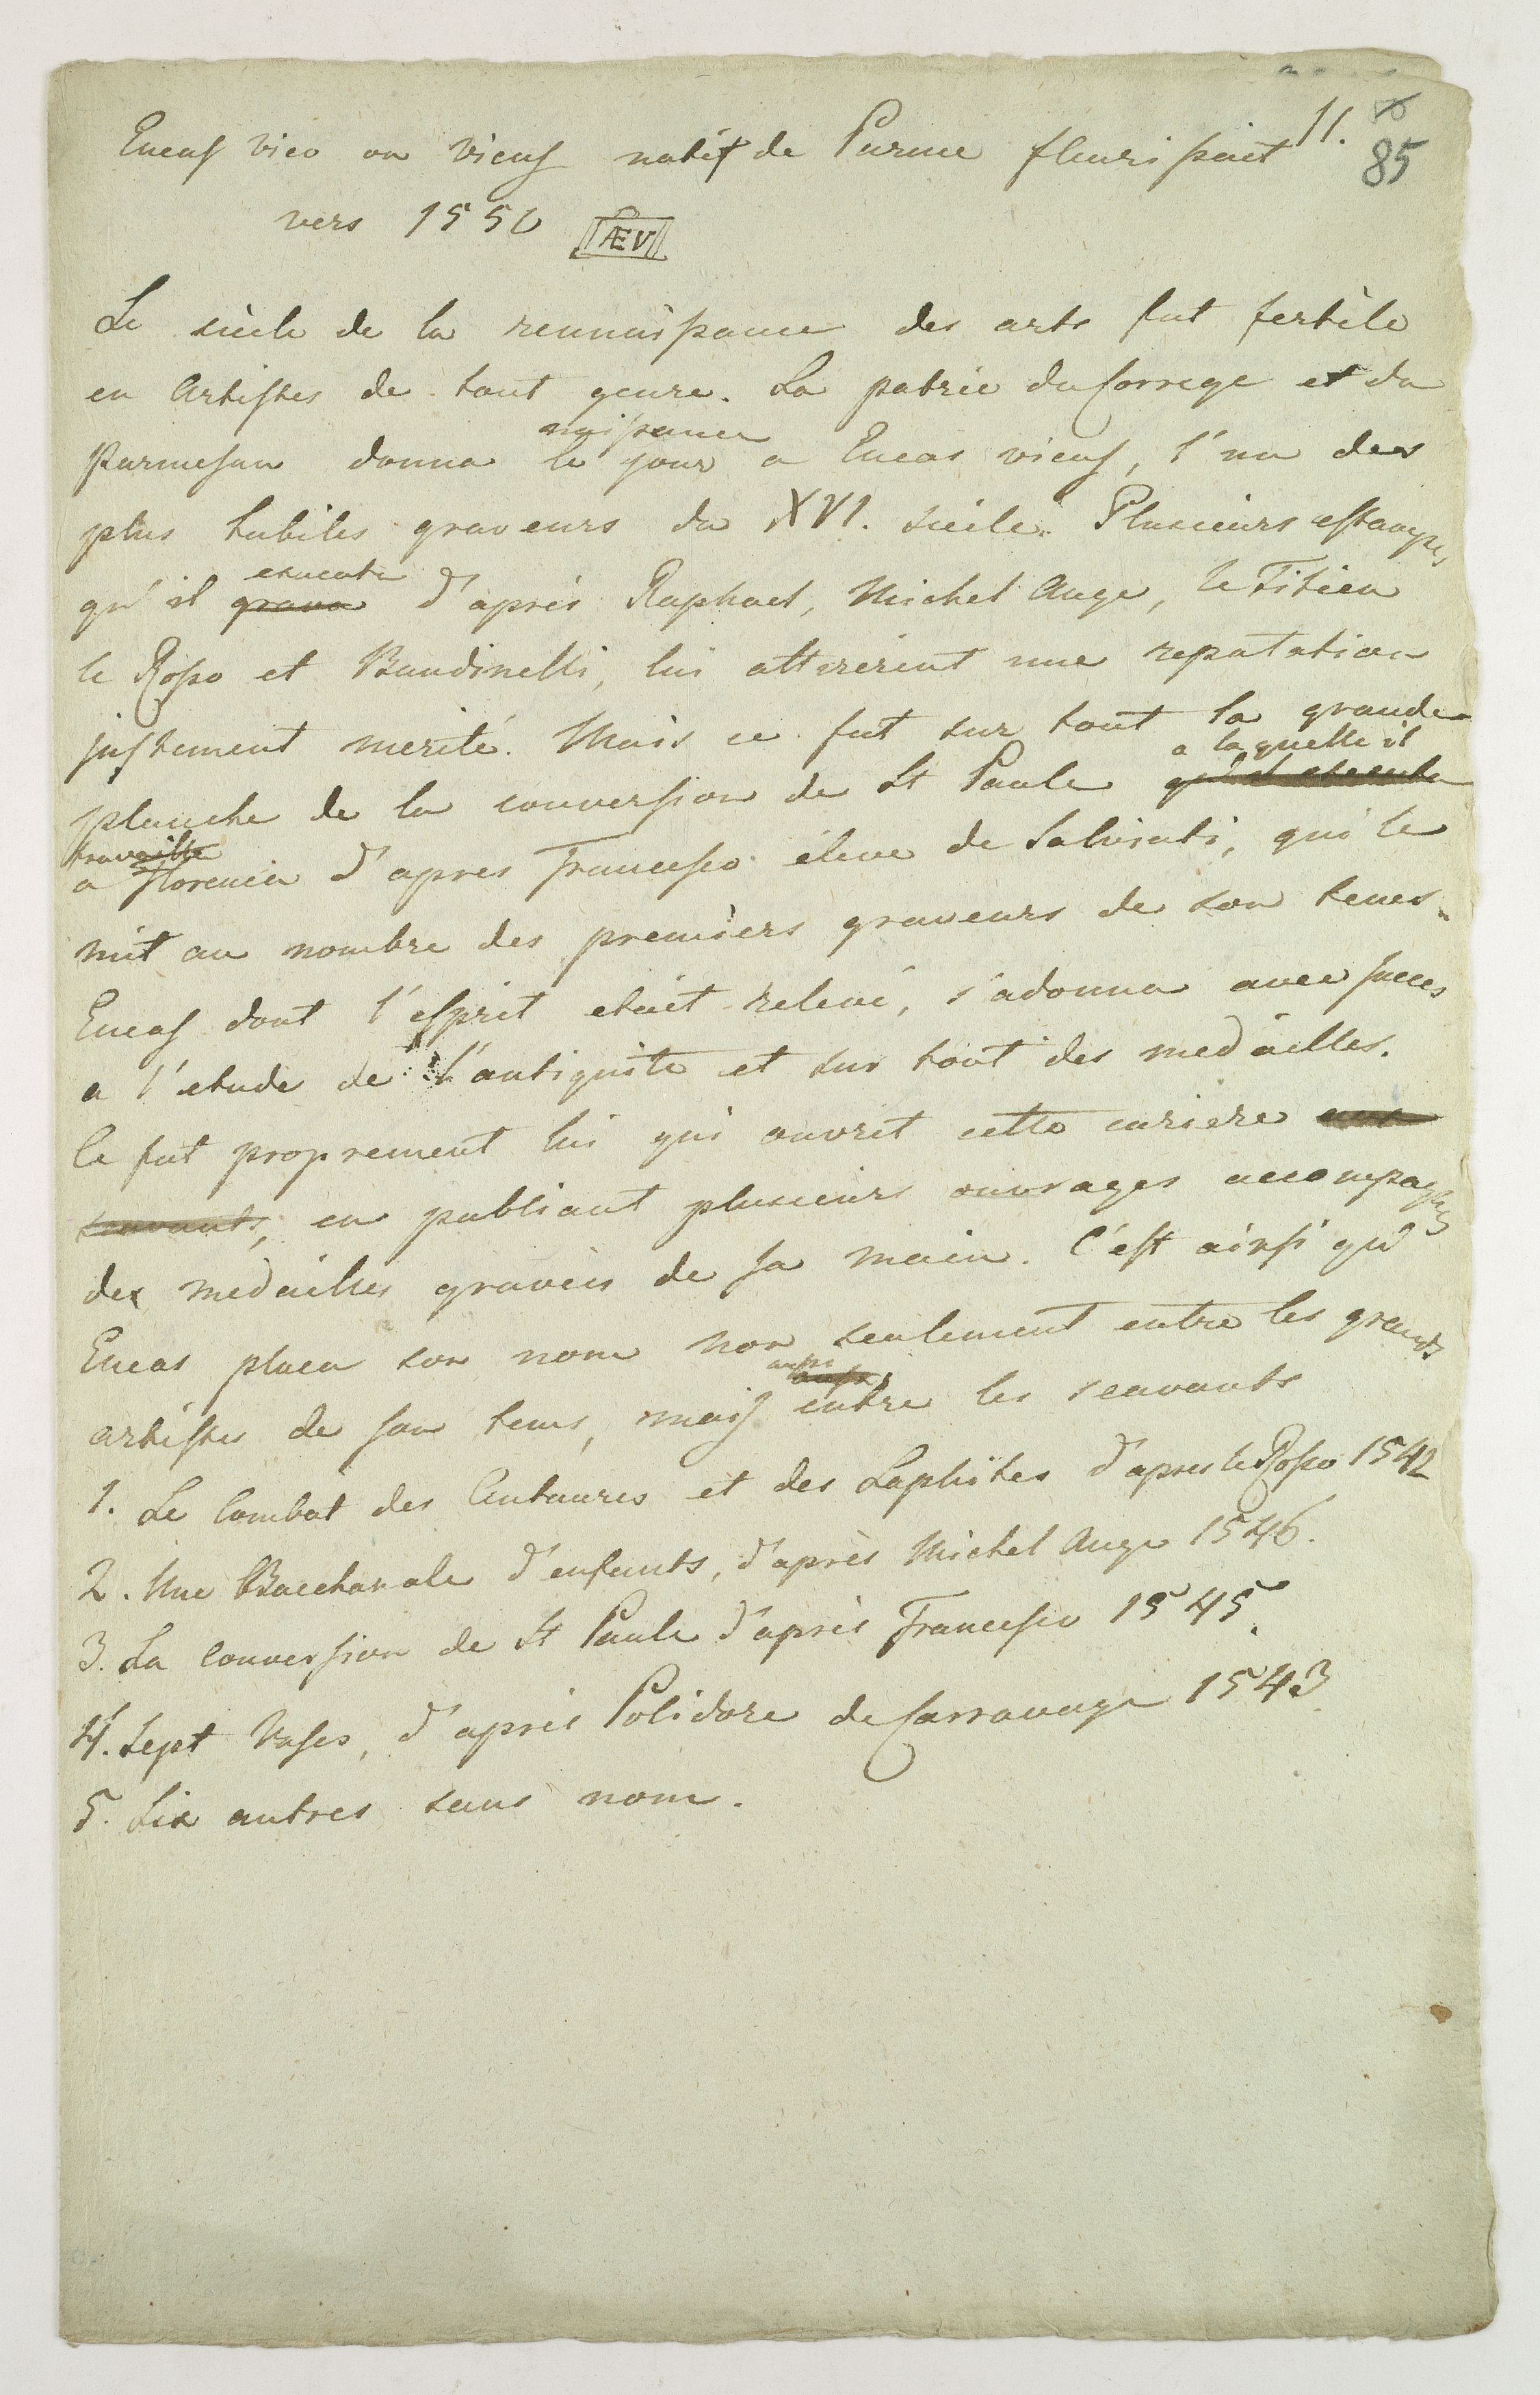 Eneas Vico ou Vicus natif de Parme fleurissait 11. 85
vers 1550 ÆV
Le siècle de la rennaissance des arts fut fertile
en Artistes de tout genre. La patrie du Correge et du
naissance
Parmesan donna le jour a Eneas vicus, l'un des
plus habiles graveurs du XVI. siècle. Plusieurs estampes
executa
qu'il grava d'après Raphael, Michel Ange, le Titien
le Rosso et Bandinelli, lui attirèrent une reputation
justement merité. Mais ce fut sur tout la grande
a laquelle il
planche de la conversion de St Paule qu'il executa
travailla
a Florence d'apres Francesco élève de Salviati, qui le
mit au nombre des premièrs graveurs de son tems.
Eneas dont l'esprit etait relevé, s'adonna avec succes
a l'etude de l'antiquité et sur tout des medailles.
Ce fut proprement lui qui ouvrit cette cariere aux
scavants, en publiant plusieurs ouvrages accompagnés
des medailles gravées de sa main. C'est ainsi qu'
Eneas placa son nom non seulement entre les grands
aussi
artistes de son tems, mais entre les scavants
1. Le Combat des Centaures et des Laphites d'apres le Rosso 1542
2. Une Bacchanale d'enfants, d'après Michel Ange 1546.
3. La Conversion de St Paule d'après Francesco 1545.
4. Sept Vases, d'après Polidore de Carravage 1543
5. Six autres sans nom.